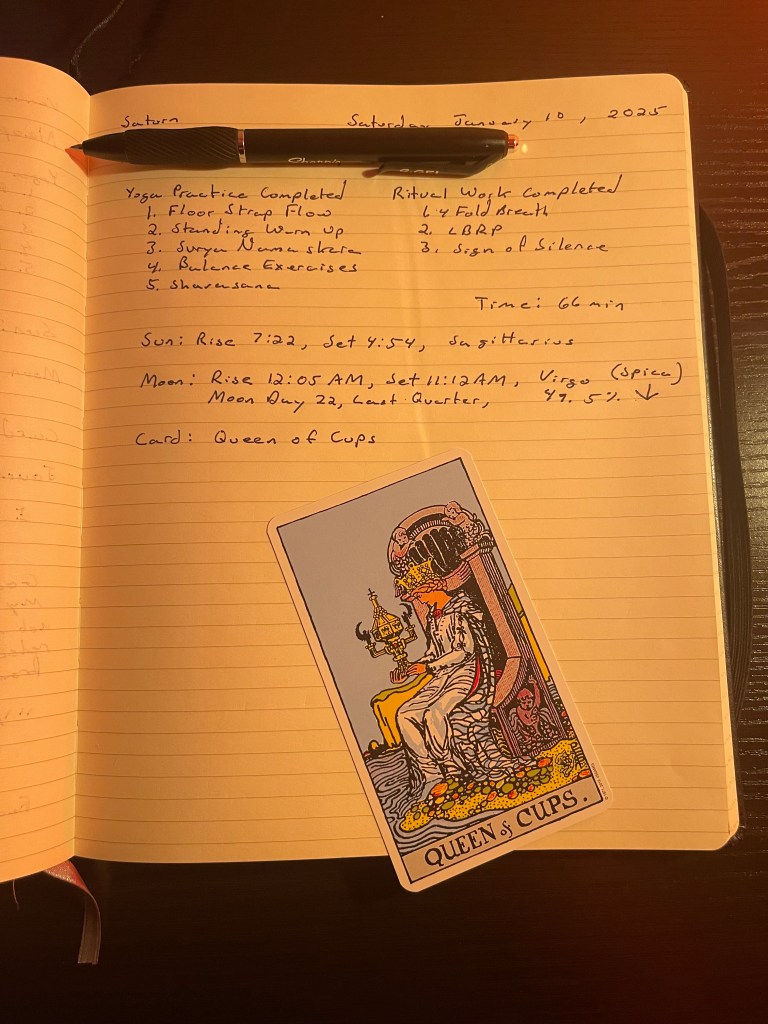 Saturn
Saturday January 10, 2025
Yoga Practice Completed
1. Floor Strap Flow
2. Standing Warm Up
3. Surya Namaskara
4. Balance Exercises
5. Shavasana
Ritual Work Completed
1. 4 Fold Breath
2. LBRP
3. Sign of Silence
Time: 66 min
Sun: Rise 7:22, Set 4:54, Sagittarius
Moon: Rise 12:05 AM, Set 11:12 AM, Virgo (Spica)
Moon Day 22, Last Quarter, 49.5% ↓
Card: Queen of Cups
QUEEN of CUPS.